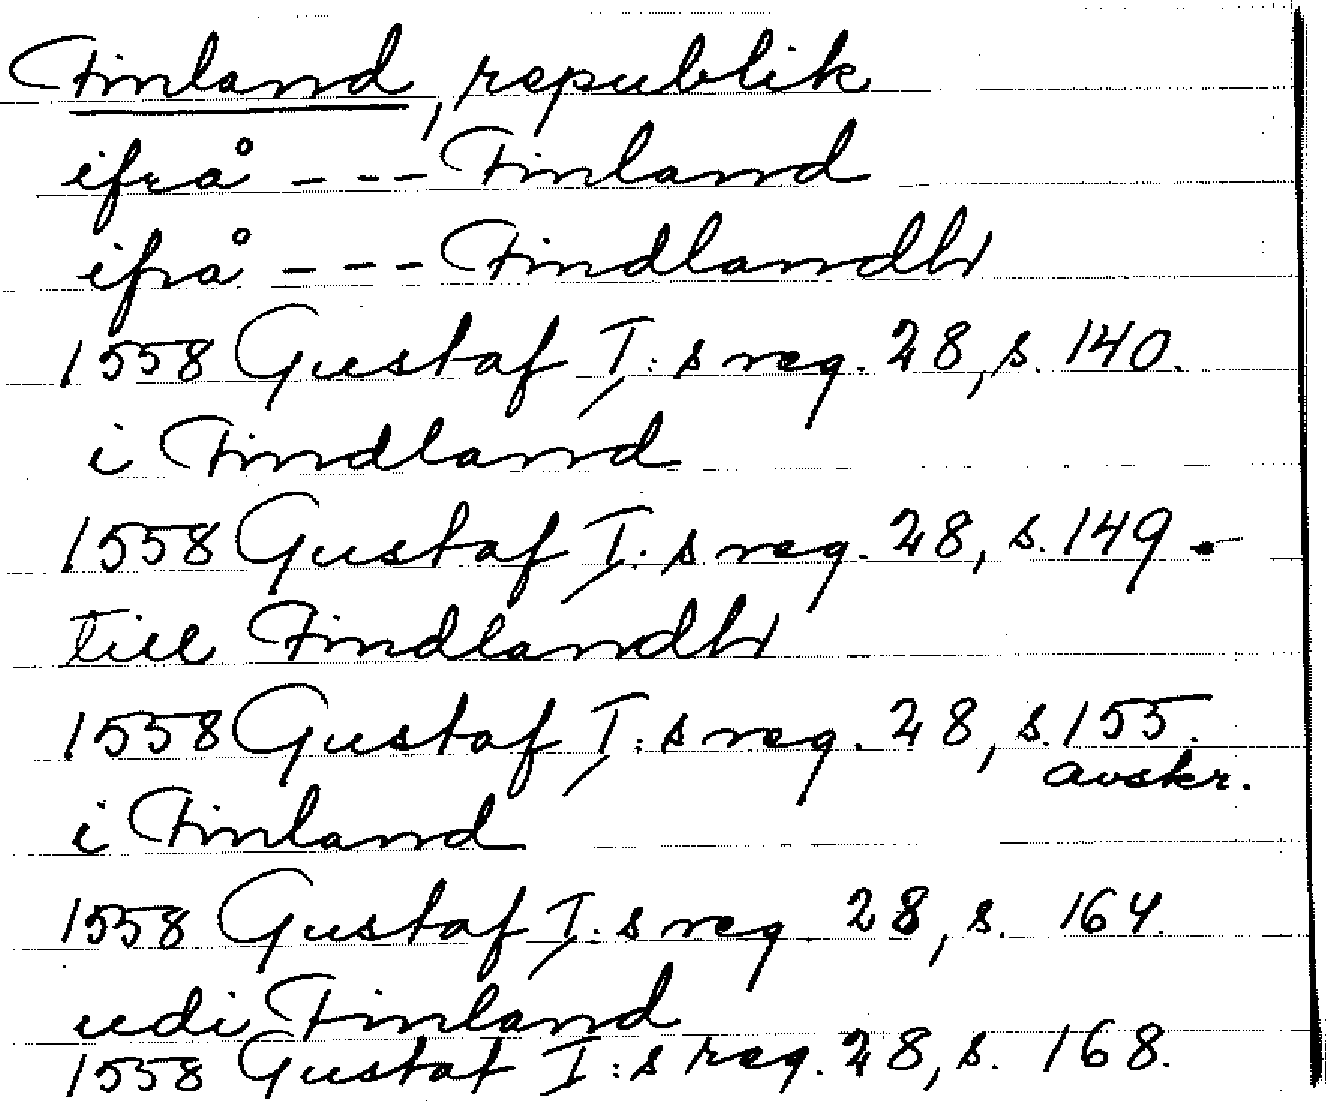 Finland, republik
ifrå - - - Finland
ifrå - - - Findlandh
1558 Gustaf I:s reg. 28, s. 140.
i Findland
1558 Gustaf I:s reg. 28, s. 149.
till Findlandh
1558 Gustaf I:s reg. 28, s. 155.
avskr.
i Finland
1558 Gustaf I:s reg 28, s. 164.
udi Finland
1558 Gustaf I:s reg. 28, s. 168.